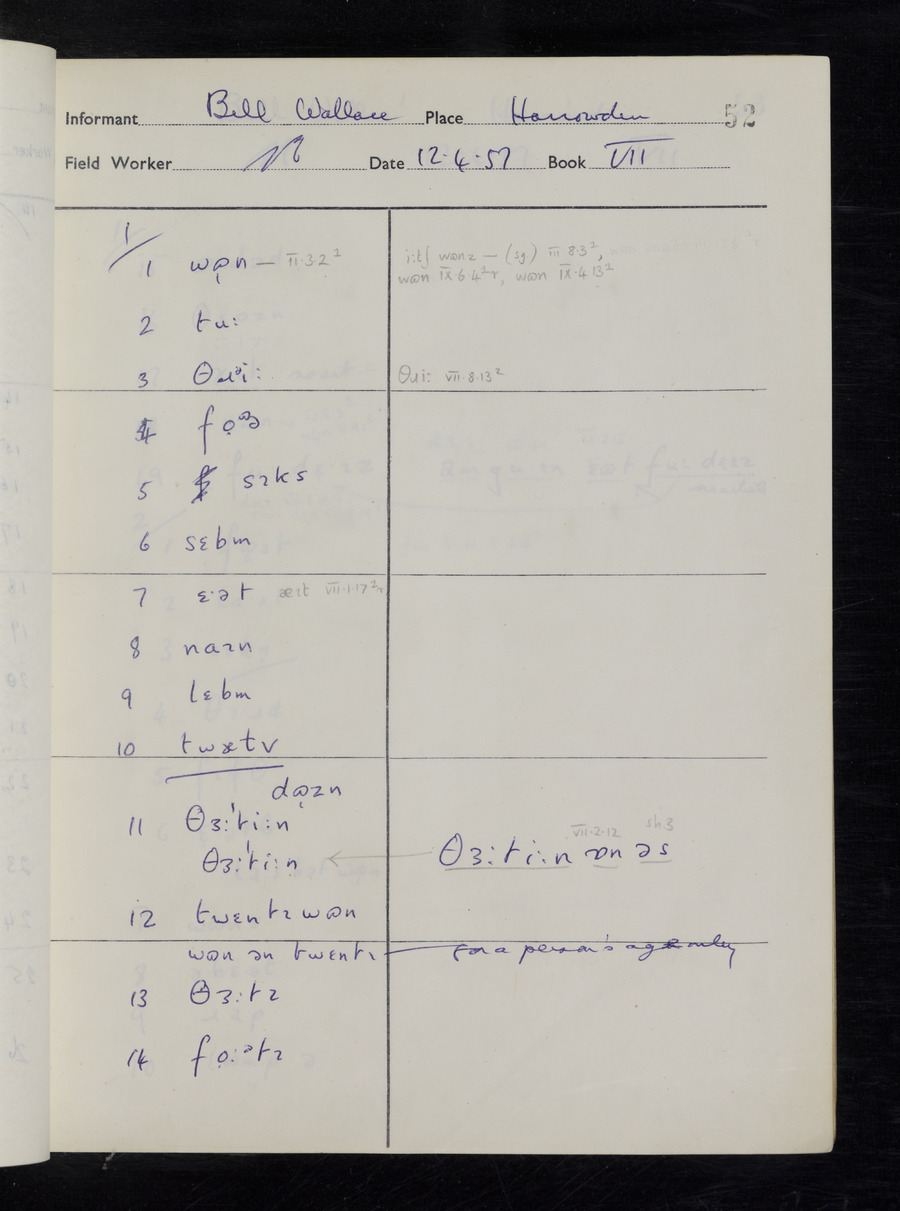 Informant Bill Wallace Place Harrowden 52
Field Worker Date 12·4·57 Book VII
1/
1 wɒ̣n — II·3·2² i:tʃ wɒnz — (sg.) III 8·3²,
wɒn IX·6·4²r, wɒn IX·4·13²
2 tu:
3 Θɹᵊi: Θɹi: VII·8·13²
4 fọə
5 sɪks
6 sɛbm
7 ɛ·ət æɪt VII·1·17²r
8 naɪn
9 lɛbm
10 twɛtv
dɒ̣zn
11 Θɜ:'ti:n
Θɜ:'ti:n Θɜ:ti:n ɒn əs VII·2·12 sh3
12 twɛntɪ wɒn
wɒn ən twɛntɪ — for a person's age only
13 Θɜ:tɪ
14 fọ:ᵊtɪ